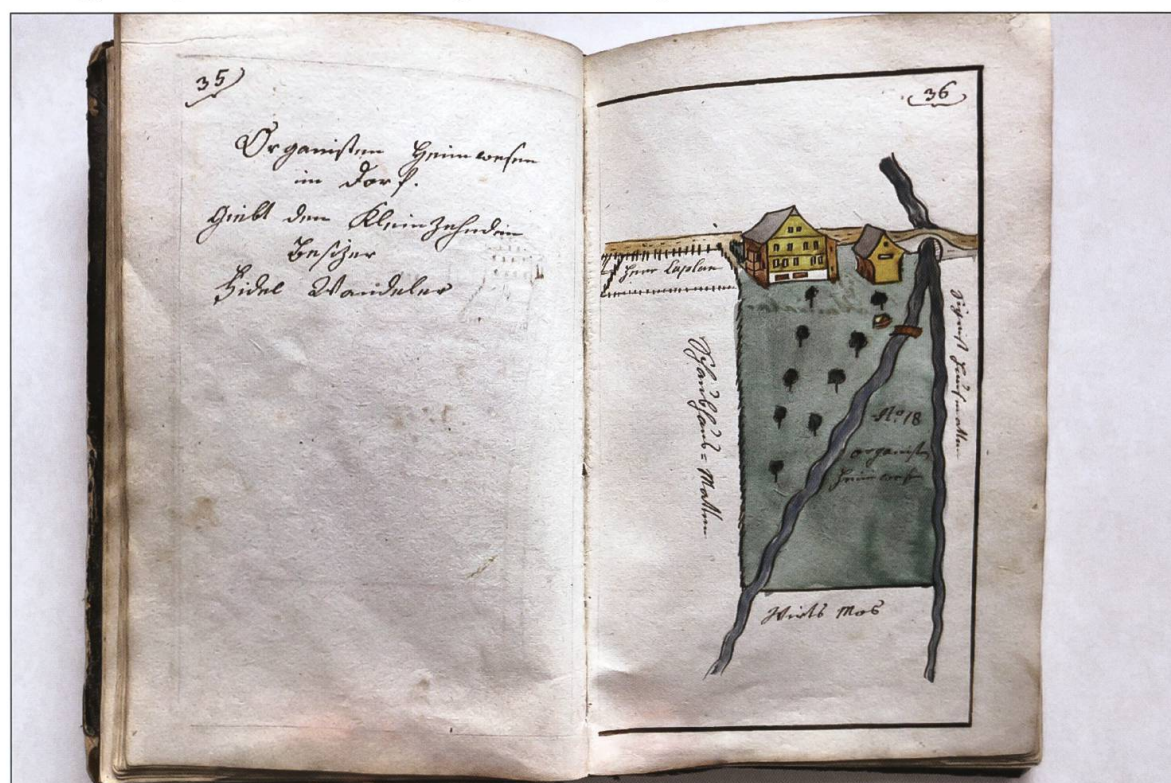 35
Organisten Heimwesen
im Dorf.
Giebt den Kleinzehnden
Besitzer
Fidel Wandeler
36
Herr Caplan
Schaubhaus=Matten
No 18
organisten
Heimwesen
Wirts Mos